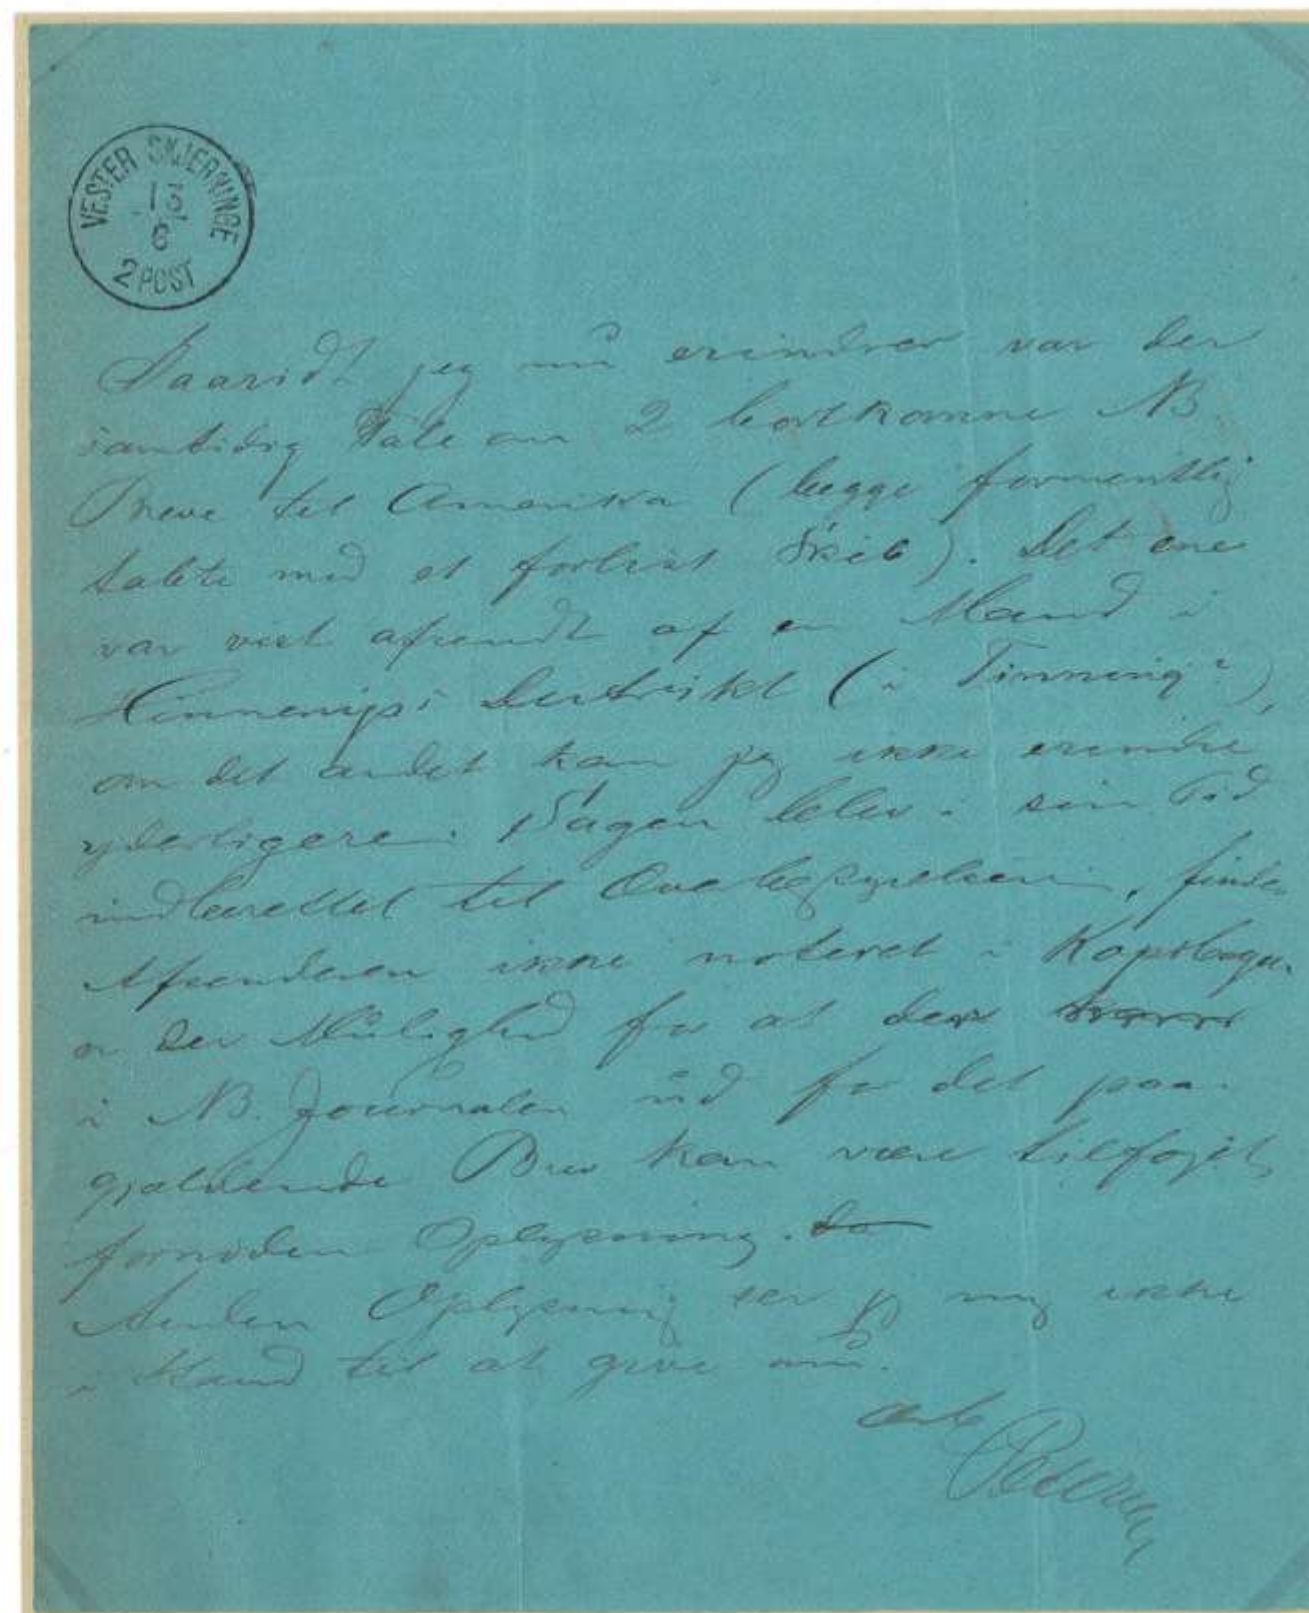 VESTER SKJERNINGE
13
6
2 POST
Saavidt jeg nu erindrer var der
samtidig Tale om 2 bortkomne NB
Breve til Amerika (begge formentlig
tabte med et forlist Skib). Det ene
var vist afsendt af en Mand i
Distrikt (i Timring?),
om det andet kan jeg ikke erindre
yderligere. Sagen blev i sin Tid
indberettet til Overbestyrelsen, findes
Afsenderen ikke noteret i Kopibogen
er der Mulighed for at der
i NB. Journalen ud for det paa-
gjældende Brev kan være tilføjet
fornøden Oplysning. da
Anden Oplysning ser jeg mig ikke
i Stand til at give nu.